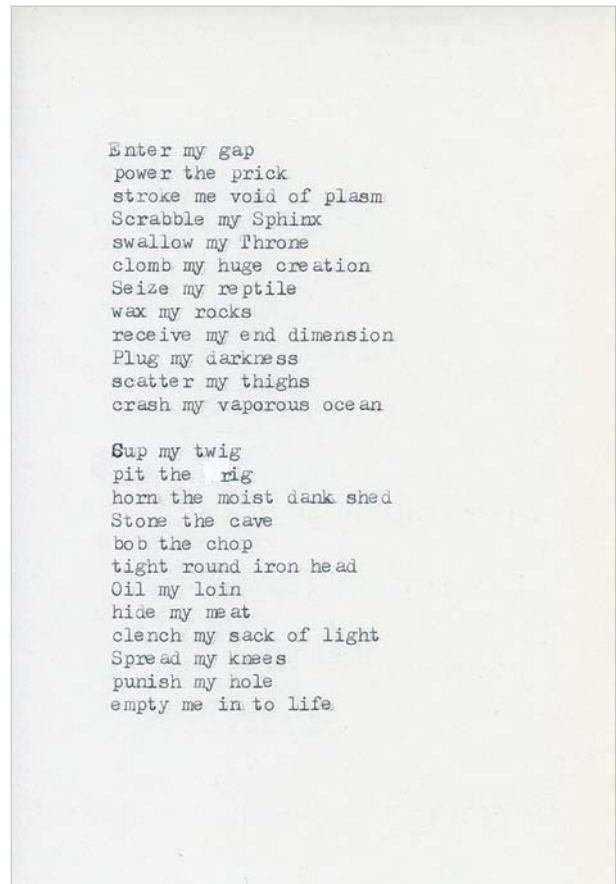 Enter my gap
power the prick
stroke me void of plasm
Scrabble my Sphinx
swallow my Throne
clomb my huge creation
Seize my reptile
wax my rocks
receive my end dimension
Plug my darkness
scatter my thighs
crash my vaporous ocean

Cup my twig
pit the rig
horn the moist dank shed
Stone the cave
bob the chop
tight round iron head
Oil my loin
hide my meat
clench my sack of light
Spread my knees
punish my hole
empty me in to life